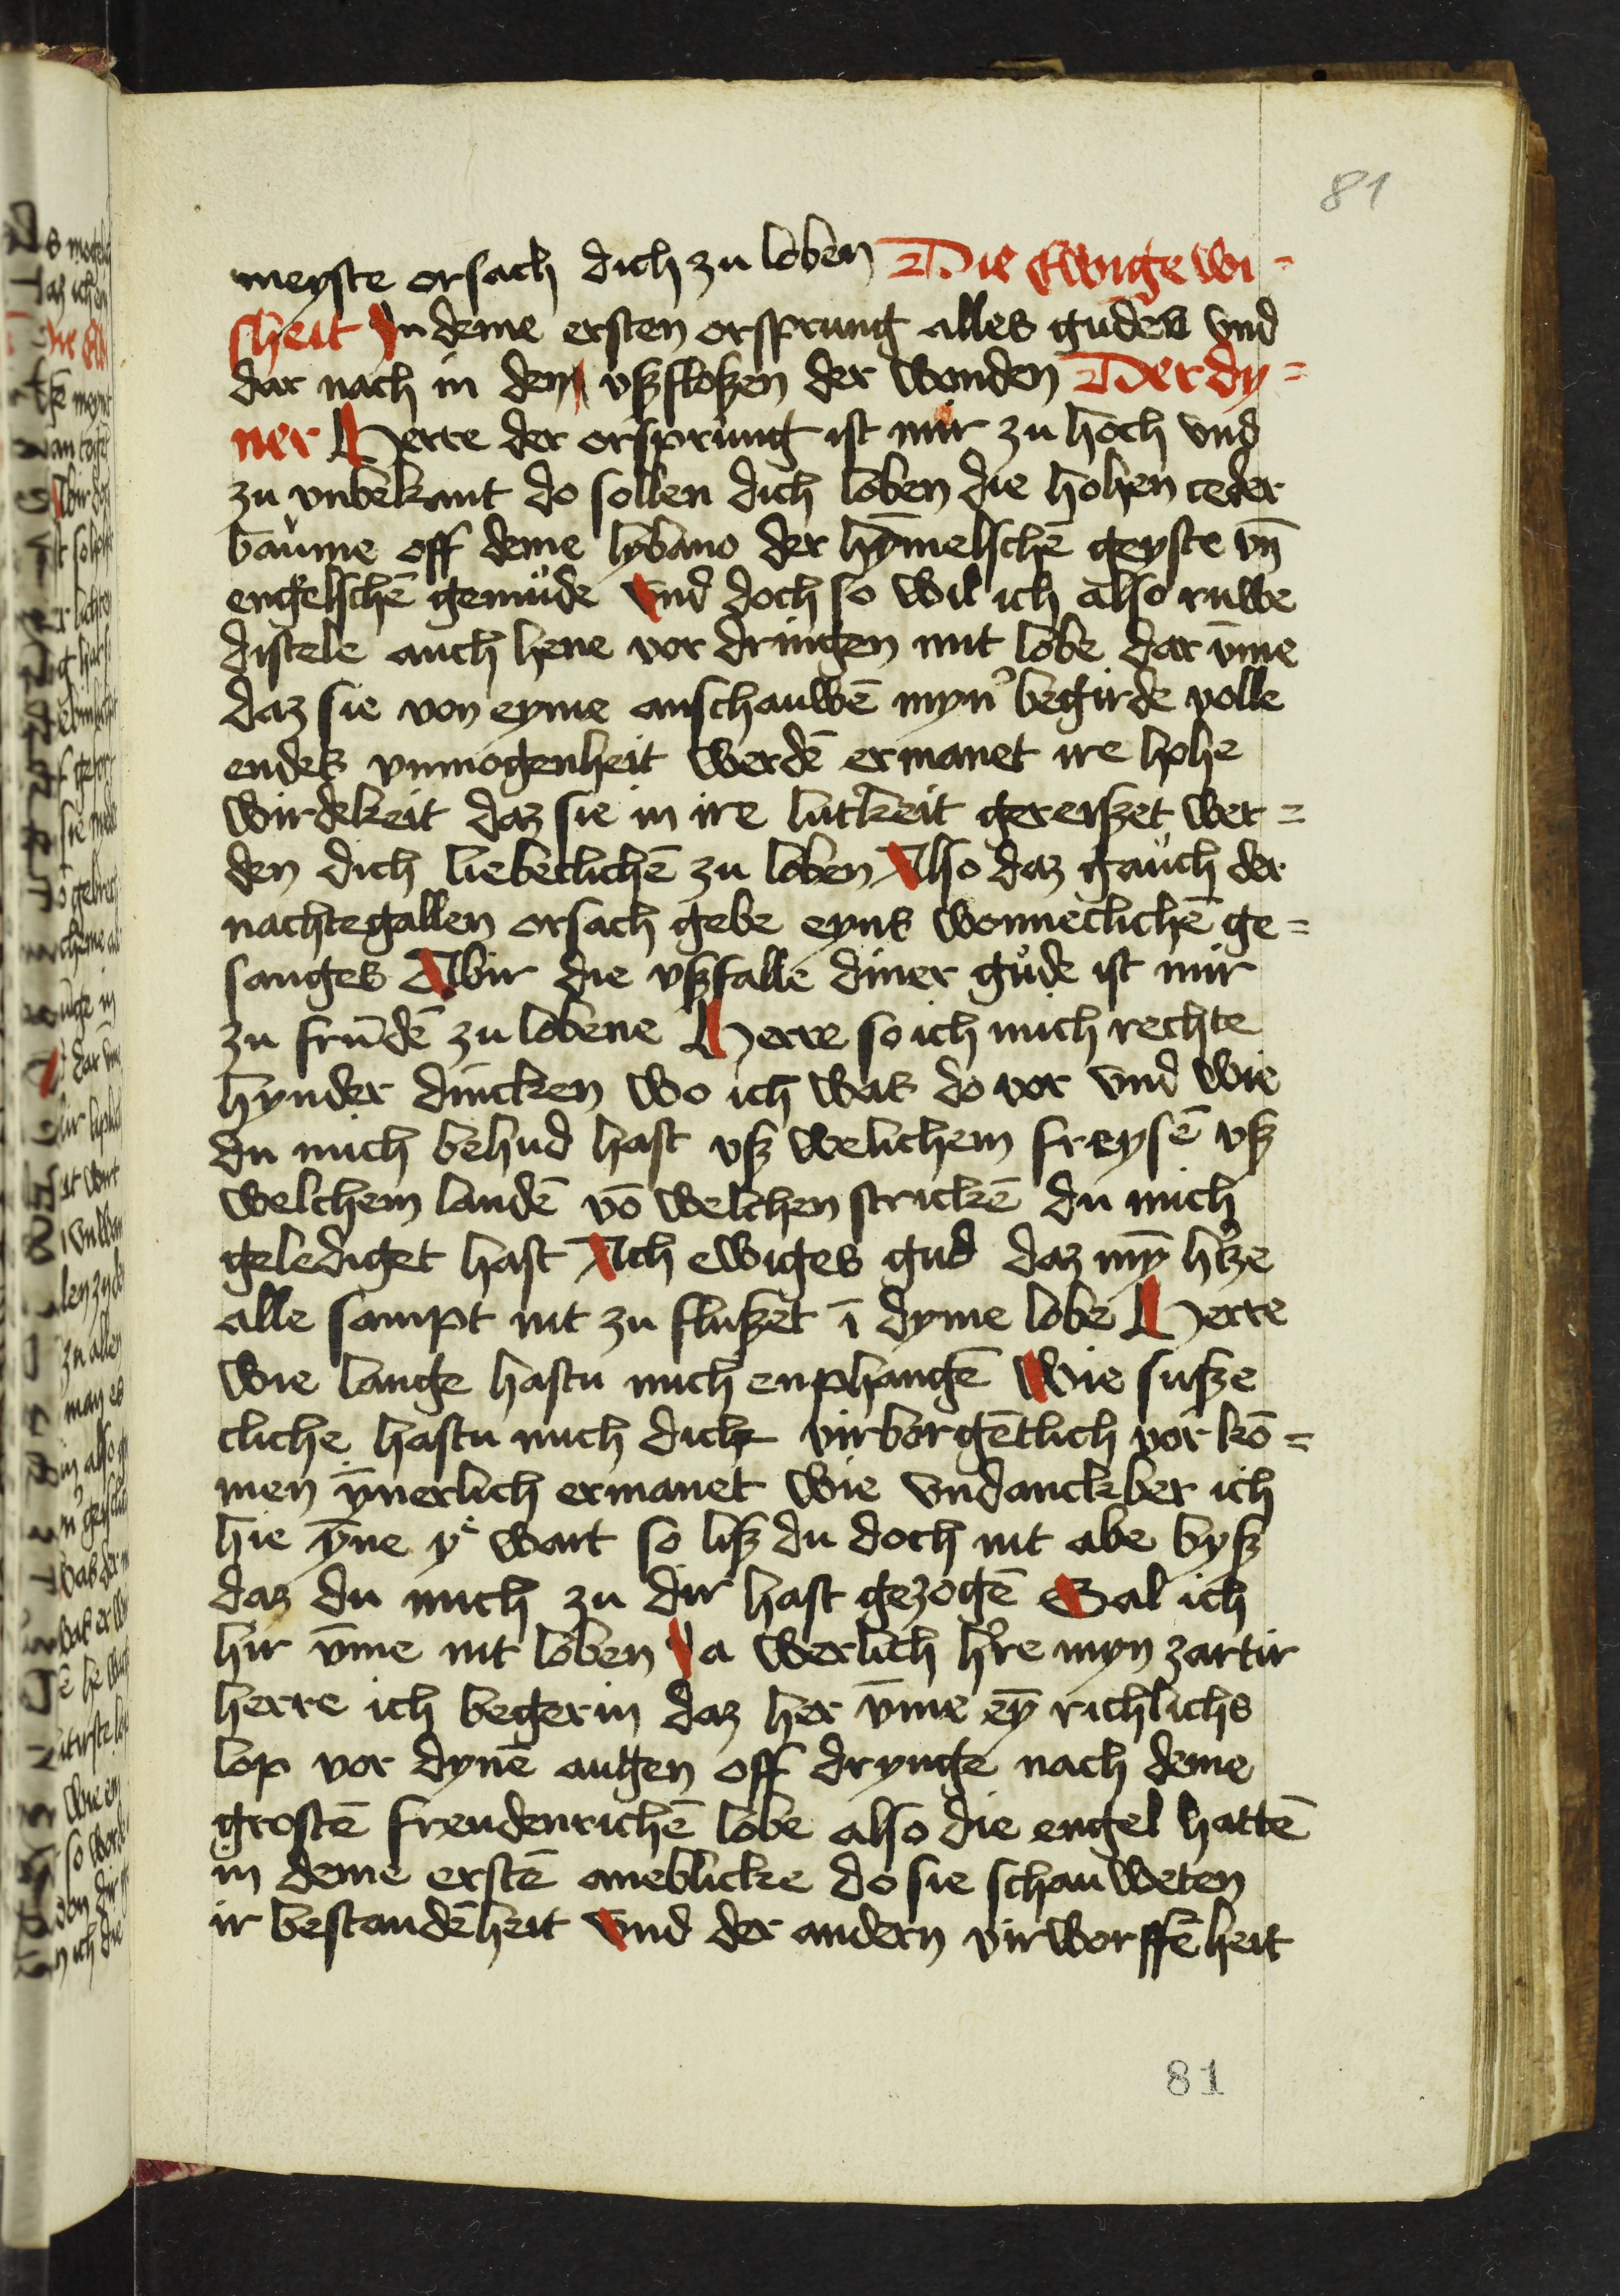 81
meyste orsach dich zu loben Die Ewige wi=
sheit In deme ersten orsprung alles gudes vnd
dar nach in den vßfloßen der wonden Der dy=
ner Herre der orsprung ist mir zu hoch vnd
zu vnbekant do sollen dich loben die hohen ceder
baume off deme lybano der hȳmelschē geyste vn̄
engelschē gemude Vnd doch so wil ich also ruwe
distele auch hene vor dringen mit lobe dar vm̄e
daz sie von eyme anschauwē myn' begirde volle
endes vnmogenheit werdē ermanet ire hohe
wirdekeit daz sie in ire lutkeit gereiszet wer=
den dich liebeclichē zu loben Also daz gauch der
nachtegallen orsach gebe eyns wonneclichē ge=
sanges Abir die vßfalle diner gude ist mir
zu frundē zu lobene Herre so ich mich rechte
hynder dincken wo ich was do vor vnd wie
du mich behud hast vß welichem freysē vß
welchem landē vō welchen strickē du mich
gelediget hast Ach ewiges gud daz mȳ h'ze
alle sampt nit zu flußet ī dyme lobe Herre
wie lange hastu mich enphangē Wie susze
cliche hastu mich dick virborgētlich vor kō=
men ȳnerlich ermanet wie vndanckber ich
hie ȳne ye wart so liß du doch nit abe byß
daz du mich zu dir hast gezogē Sal ich
hir vm̄e nit loben Ja werlich h're myn zartir
herre ich begerin daz her vm̄e eȳ richlichs
lop vor dynē augen off drynge nach deme
grostē freudenrichē lobe also die engel hattē
in deme erstē aneblicke do sie schauweten
ir bestandēheit Vnd der andern virworffēheit
81